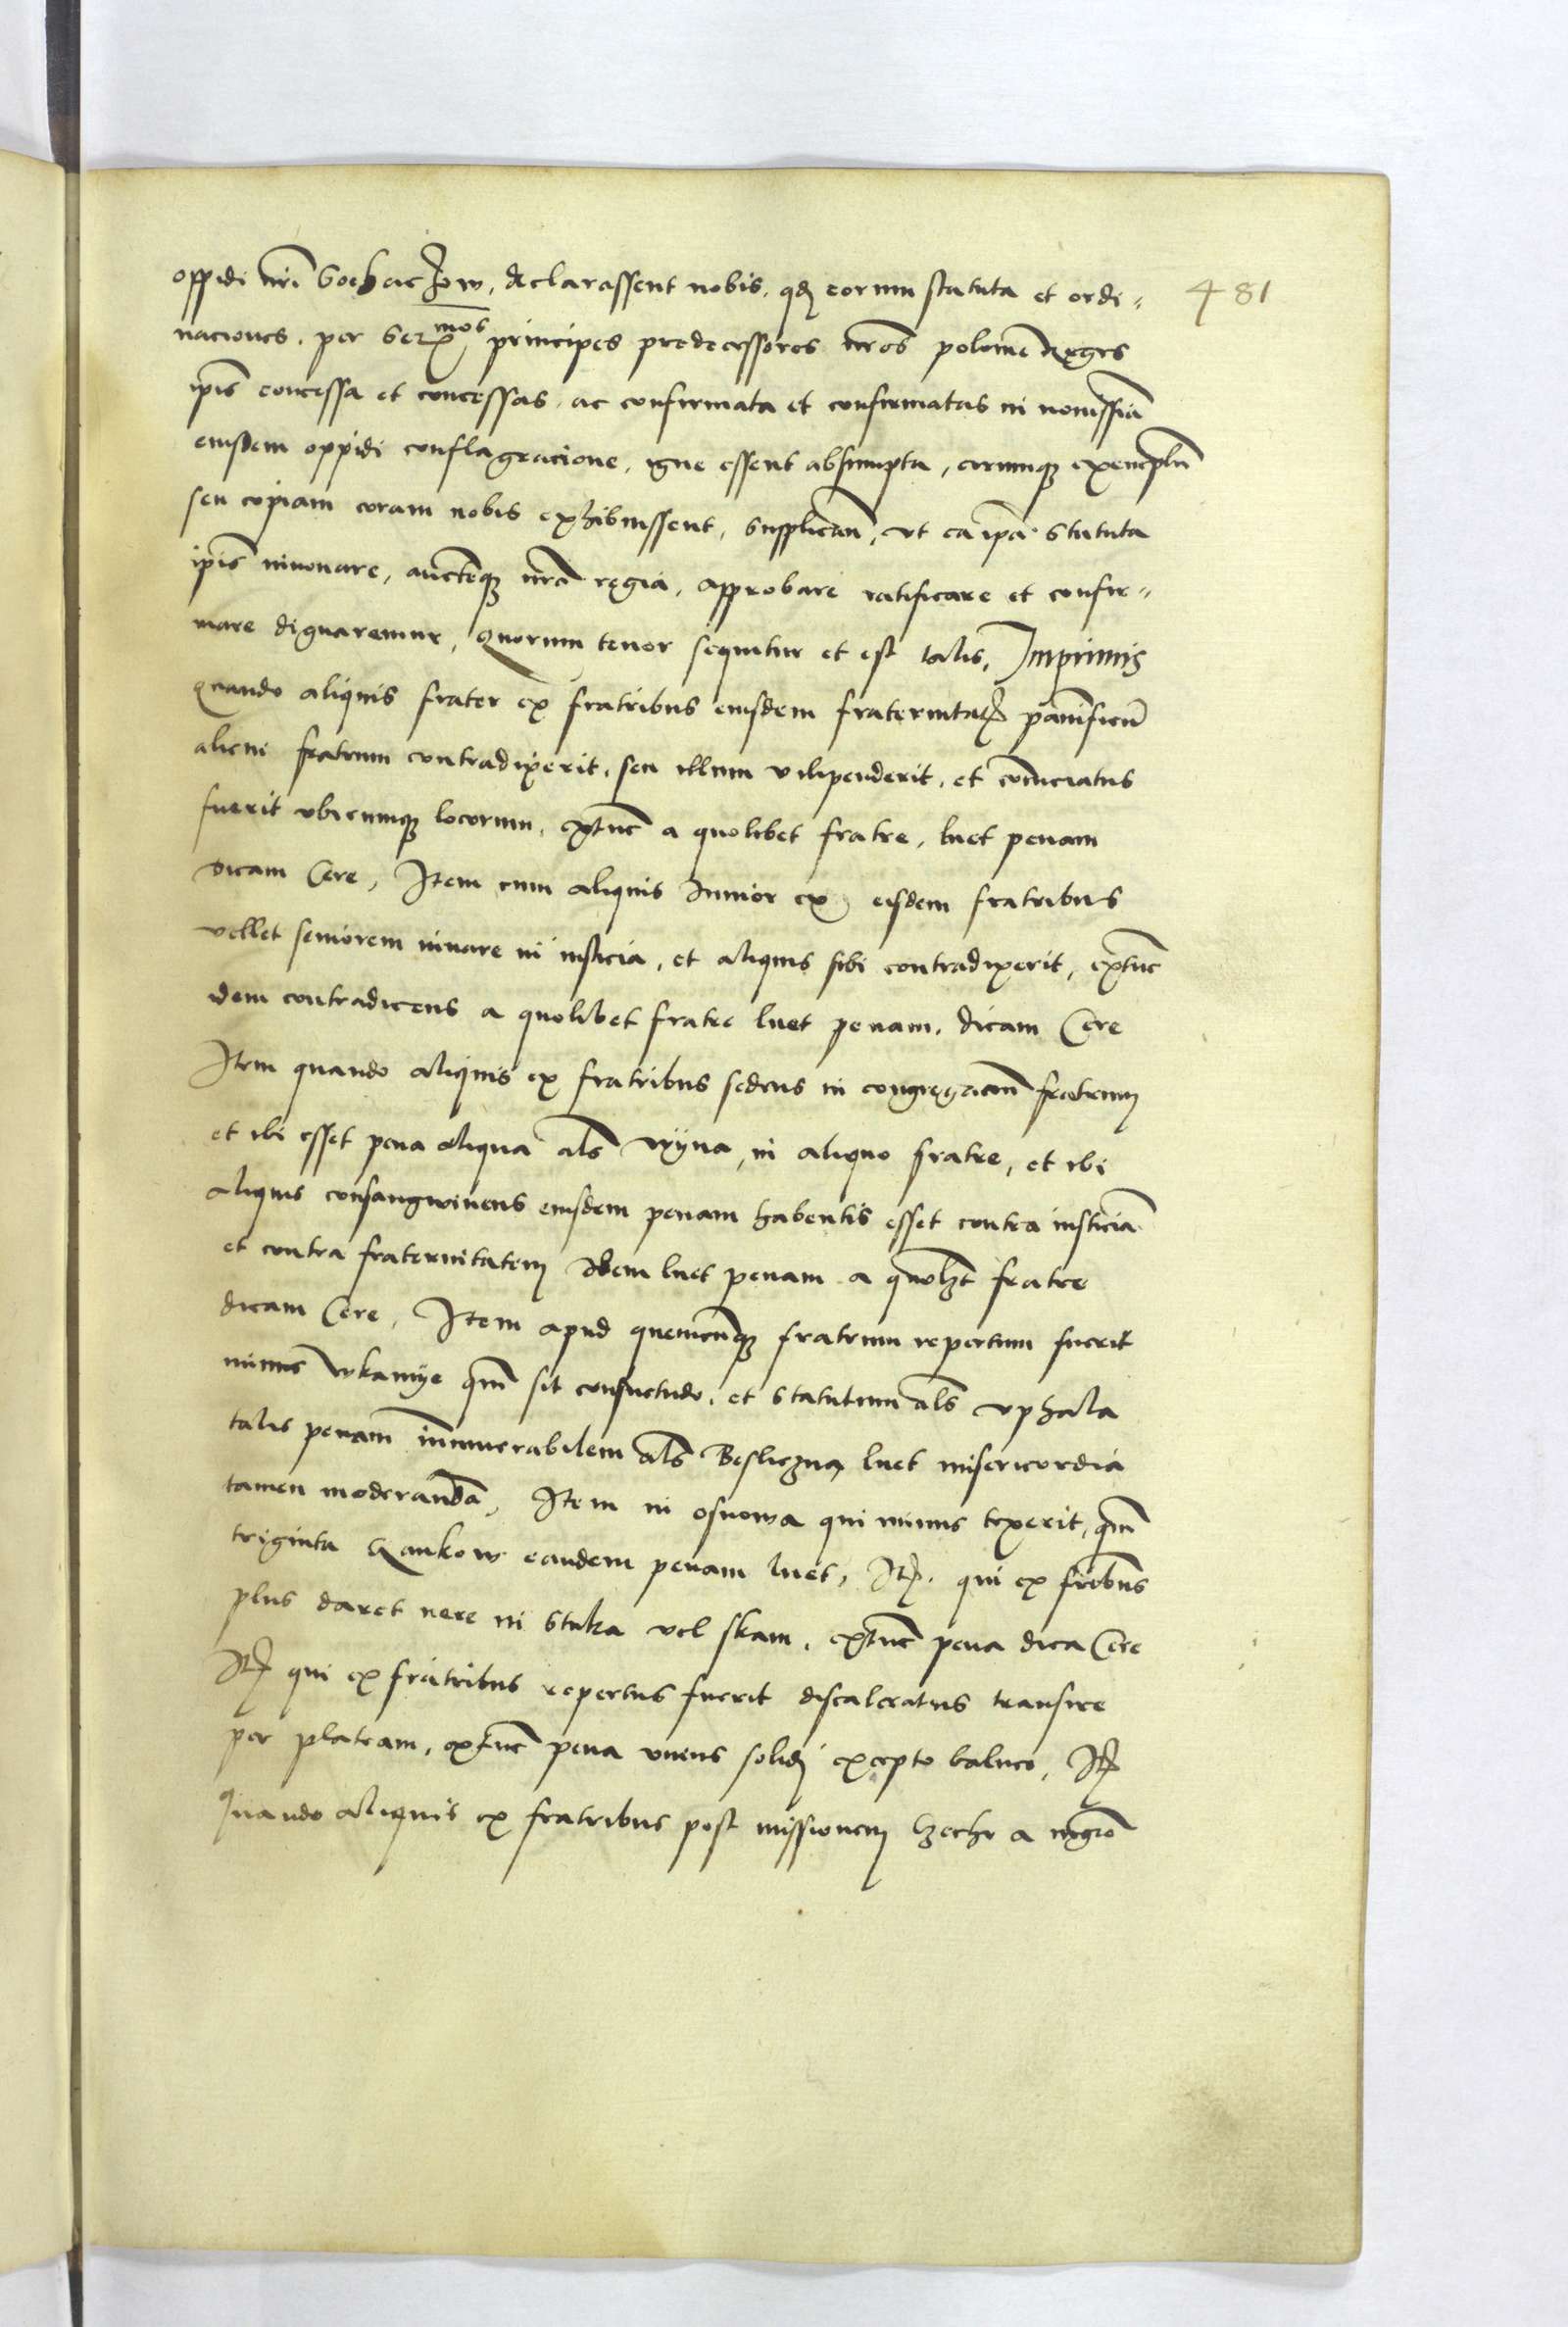 oppidi nri Sochaczow, declarassent nobis. qd eorum statuta et ordi-
481
naciones. per Ser mos principes predecessores nros polonie Reges
ipis concessa et concessas. ac confirmata et confirmatas in novissia
eiusdem oppidi conflagracione, igne essent absumpta, eorumq exemplu
seu copiam coram nobis exhibuissent, Supplican, ut ea ipa statuta
ipis innovare, aucteq nra regia, approbare ratificare et confir-
mare dignaremur, Quorum tenor sequitur et est talis, Imprimis
quando aliquis frater ex fratribus eiusdem fraternitat panificu
alicui fratrum contradixerit, seu illum vilipenderit, et convictatus
fuerit ubicumq locorum, extunc a quolibet fratre, luet penam
dicam Cere, Item cum aliquis Junior ex eisdem fratribus
vellet seniorem iuvare in iusticia, et aliquis sibi contradixerit, extunc
idem contradicens a quolibet fratre luet penam, dicam Cere
Item quando aliquis ex fratribus sedens in congregacon fratrum
et ibi esset pena aliqua als wyna, in aliquo fratre, et ibi
aliquis consangwineus eiusdem penam habentis esset contra iusticia
et contra fraternitatem Idem luet penam a quolzt fratre
dicam Cere, Item apud quemcunq fratrum repertum fuerit
minus wkamye qm sit consuetudo, et Statutum als vphala
talis penam innumerabilem als Besliczna luet misericordia
tamen moderanda, Item in osnowa qui minus texerit, qm
triginta Rankow eandem penam luet, It. qui ex fribus
plus daret nere in Stuka vel skam, extunc pena dica Cere
It qui ex fratribus repertus fuerit discalceatus transire
per plateam, extunc pena unius solid excepto balneo, It
quando aliquis ex fratribus post missionem czechi a mgro